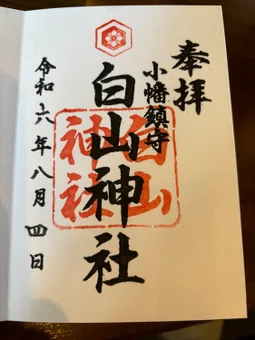 奉拝
小幡鎮守
白山神社
白山
神社
令和六年八月四日